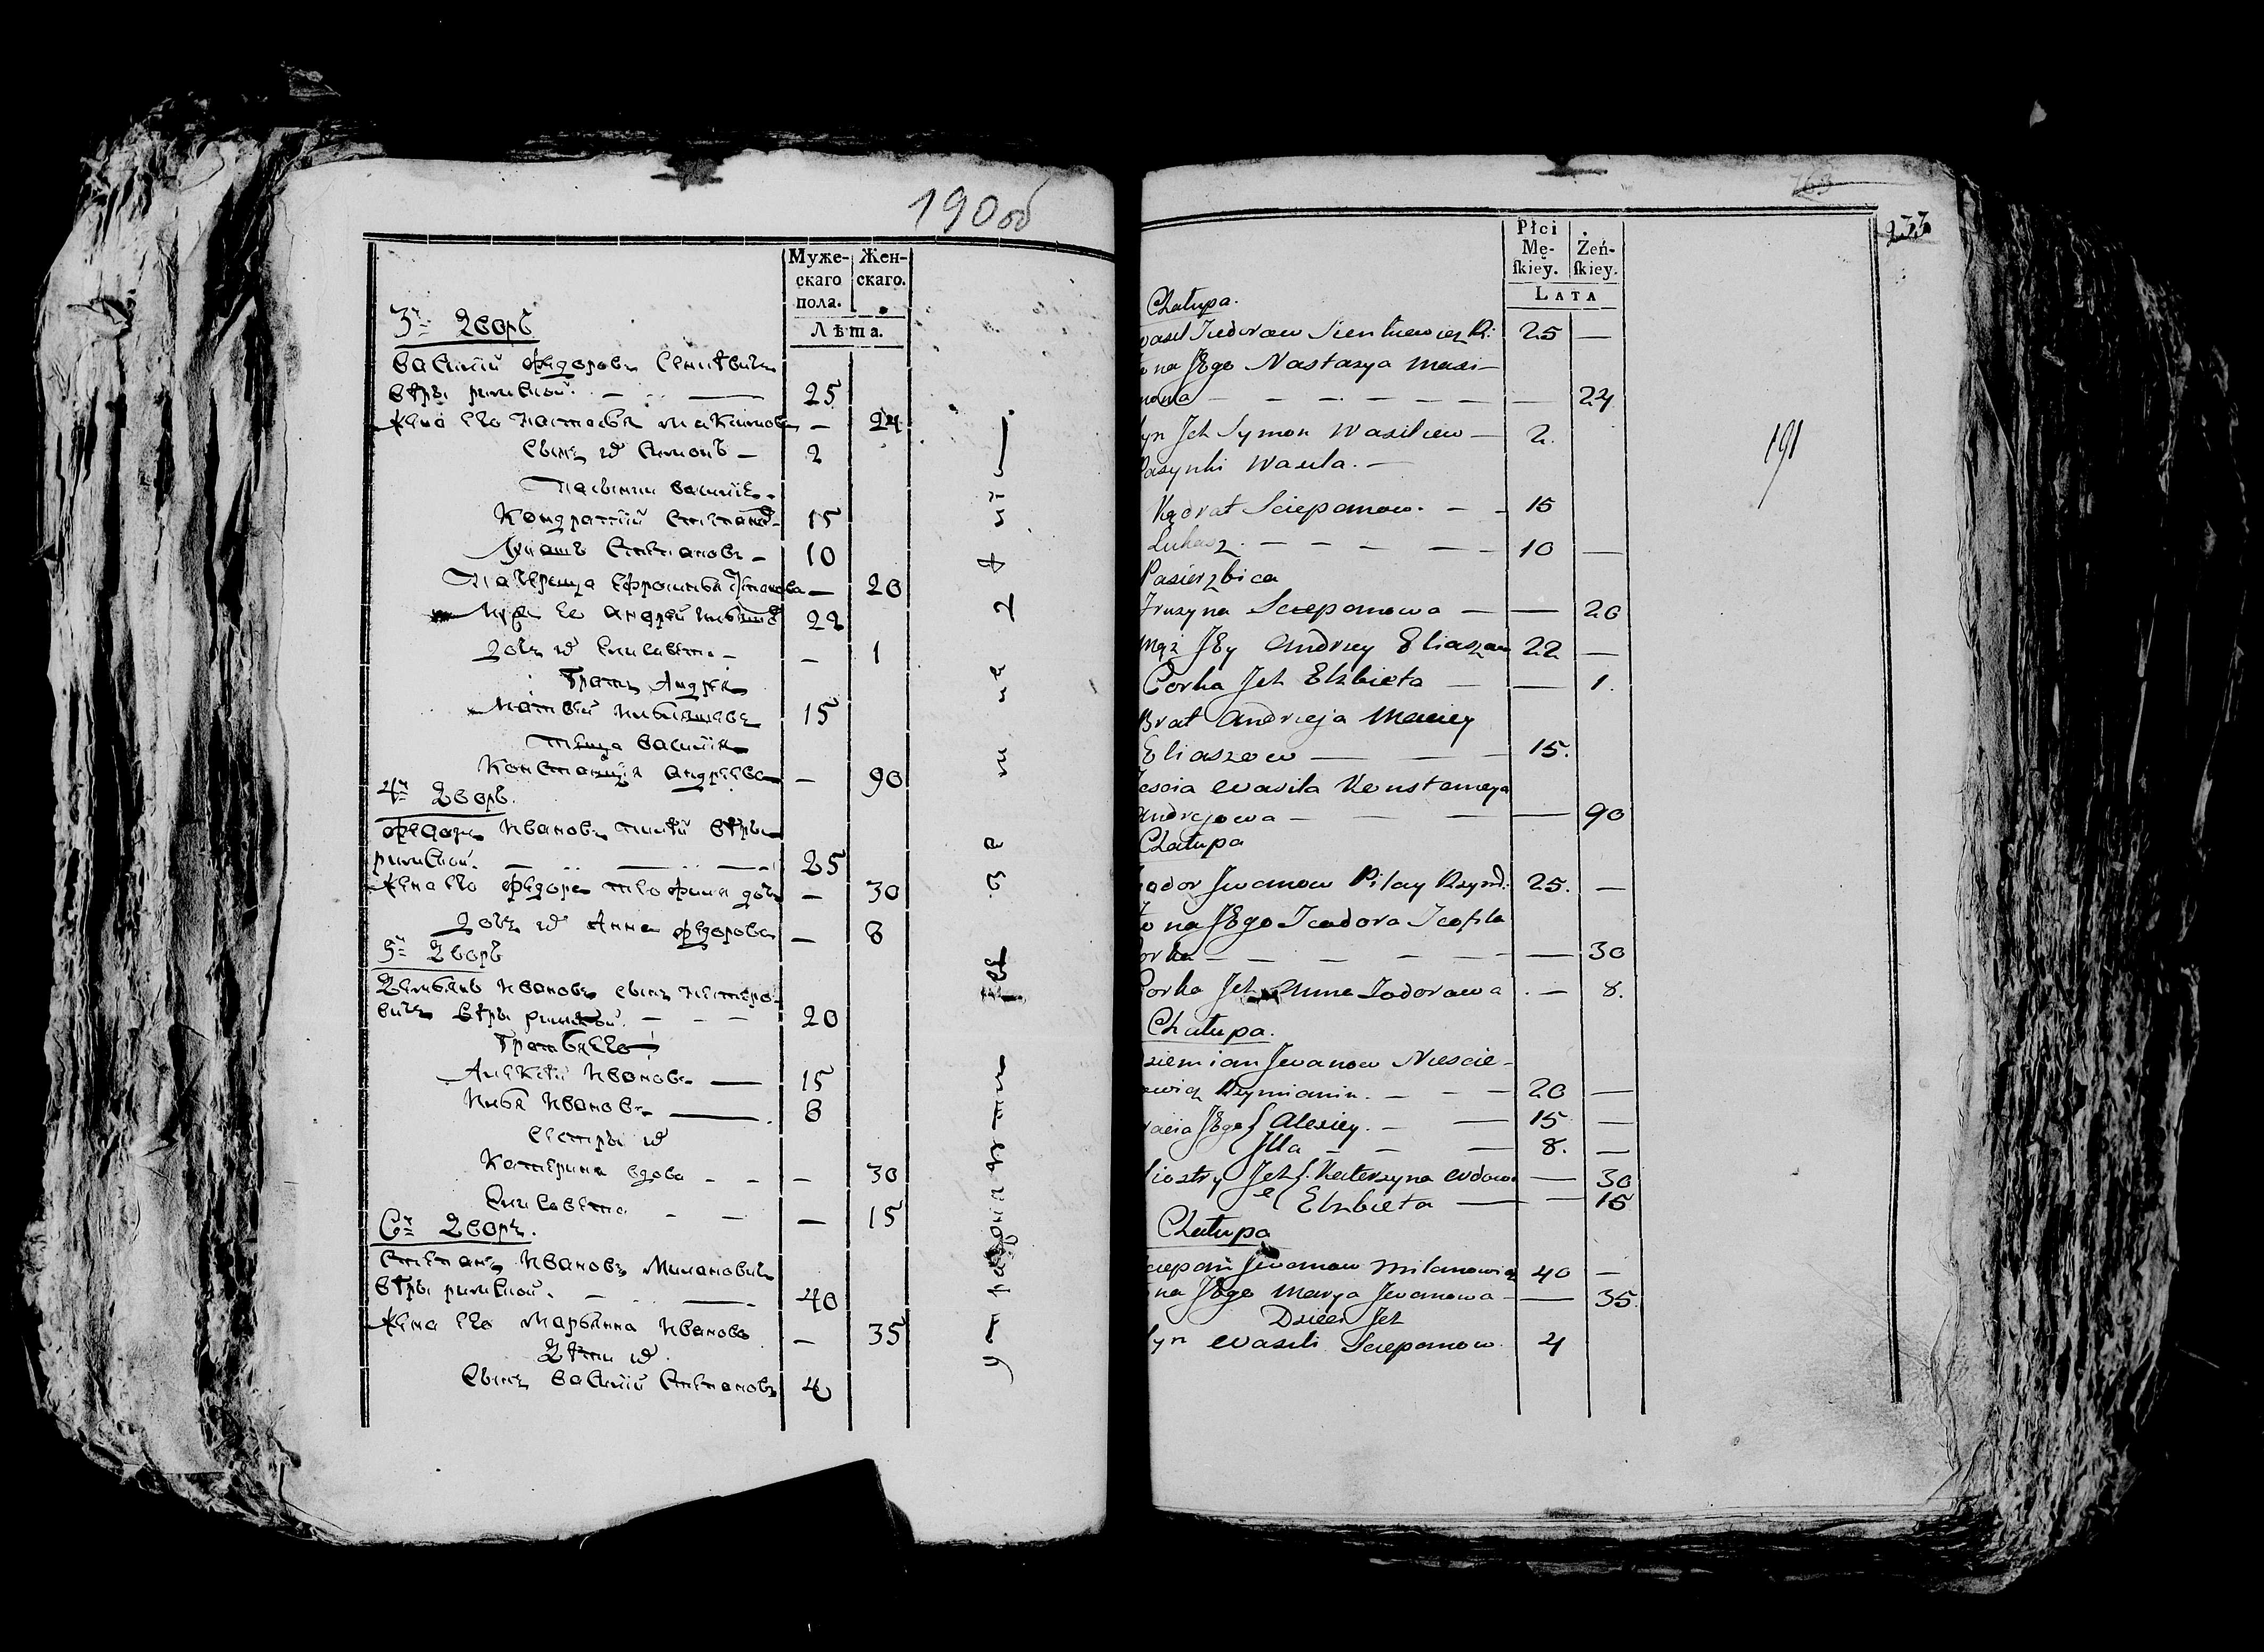 190 об
Муже-
скаго
пола.
Жен-
скаго.
Лѣта.
3й Дворъ
Василій Федоровъ
вѣры римской. 25
Жена его Настасья Максимова — 24
Сынъ их Симонъ — 2
Пасынки Василія.
Кондратій Степанов 15
Лукашъ Степановъ — 10
Падчерица Ефросинья Степанова — 20
Мужъ ее Андрей 22
Дочь их Елисавета — — 1
Братъ Андрея
Матвей 15
теща Василія
Констанція Андреева — 90
4й Дворъ.
Федоръ Ивановъ Пилай вѣры
римской. 25
Жена его Федора Теофила дочь — 30
Дочь их Анна Федорова — 8
5й Дворъ
Демьянъ Ивановъ сынъ Нестеро-
вичъ вѣры римской. 20
Братья его
Алексѣй Ивановъ 15
Илья Ивановъ 8
Сестры их
Катерина вдова — 30
Елисавета — 15
6й Дворъ.
Степанъ Ивановъ Милановичъ
вѣры римской. 40
Жена его Марьянна Иванова — 35
Дѣти их
Сынъ Василій Степановъ 4
763
233
191
Płci
Mę-
ſkiey.
Żeń-
ſkiey.
LATA
Chałupa.
25 —
na Jego Nastazya Maxi-
mowa — 24
Syn Jch Symon Wasilew — 2.
Pasynki Wasila. —
Kądrat Sciepanow. 15
Łukasz. 10 —
Pasierzbica
Fruzyna Sciepanowa — 20
Mąż Jey Andrzey Eliaszow 22 —
Corka Jch Elzbieta — 1.
Brat Andrzeja Maciey
Eliaszow 15.
Wasila Konstancya
Andrejowa — 90
Chałupa
Jwanow Pilay Rzym. 25. —
na Jego Teodora Teofila
— 30
Corka Jch Anna Todorowa . — 8.
Chałupa.
Jwanow Nieście-
Rzymianin. 20 —
Jego Alexiey. 15 —
Jlla 8. —
Siostry Jch Katerzyna wdowa — 30
Elzbieta — 15
Chałupa
Jwanow Milanowicz 40 —
na Jego Marya Jwanowa — 35.
Dzieci Jch
Syn Wasili Sciepanow. 4